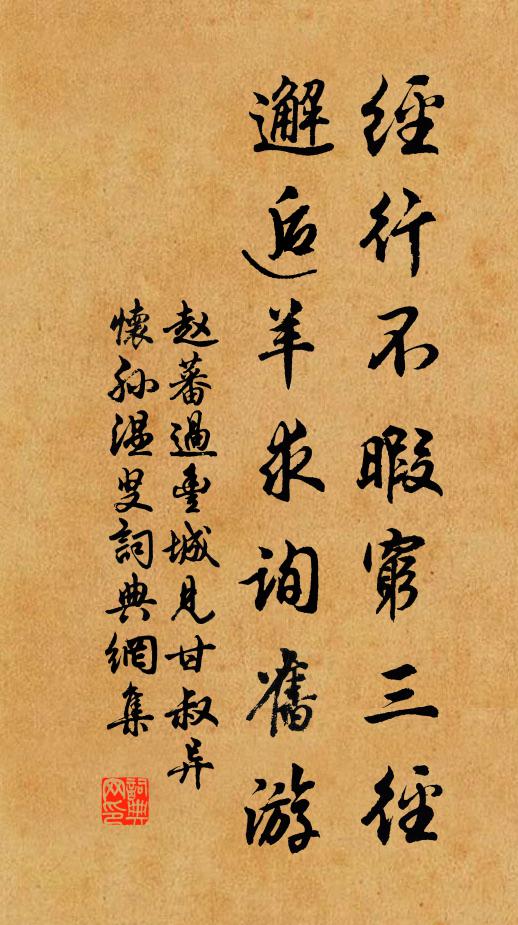 經行不暇窮三徑
邂逅羊求詢舊游
赵蕃過豐城見甘叔异
懷孙溫叟詞典網集
詞典網印